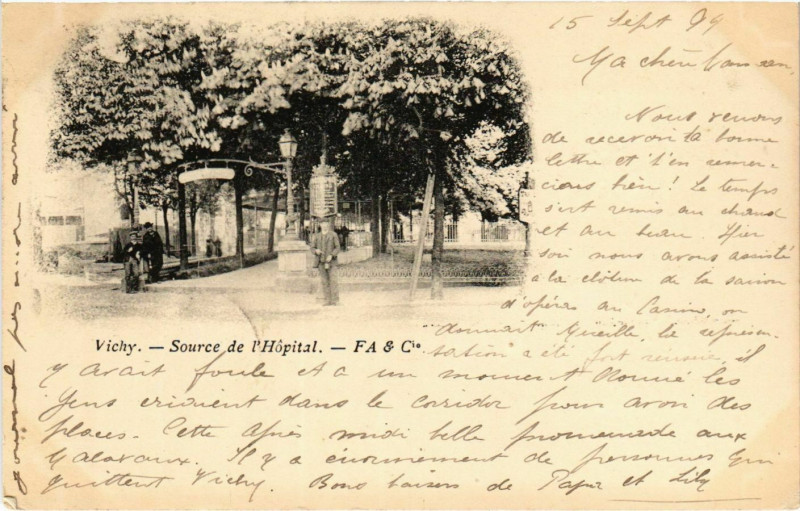 15 Sept 99
Ma chère
Nous venons
de recevoir ta bonne
lettre et t'en remer-
cions bien! Le temps
s'est remis au chaud
et au beau. Hier
soir nous avons assisté
a la clôture de la saison
d'opéras au Casino, on
donnait Mireille, la représen-
tation a été fort réussie, il
y avait foule et a un moment donné les
gens criaient dans le corridor pour avoir des
places. Cette après midi belle promenade aux
Malavaux. Il y a énormement de personnes qui
quittent Vichy. Bons baisers de Papa et Lily
Vichy. — Source de l'Hôpital. — FA & Cie
journal pas encore